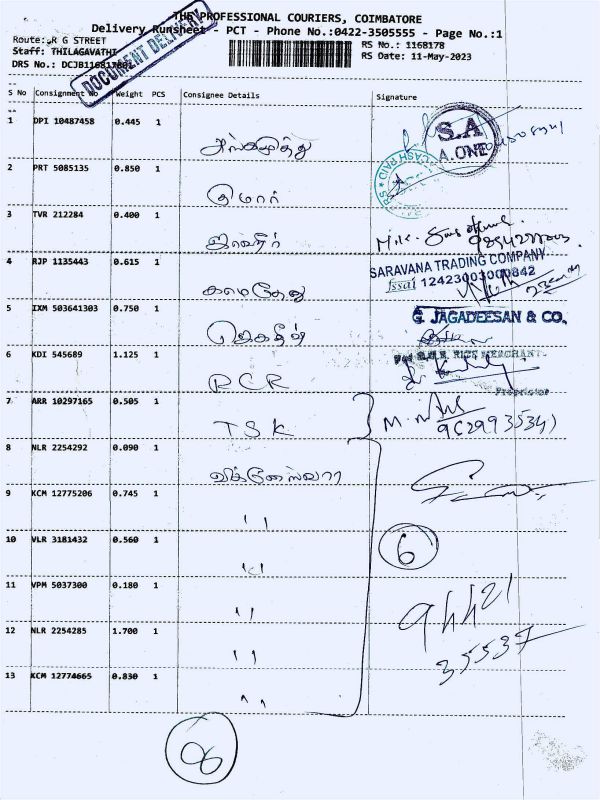 THE PROFESSIONAL COURIERS, COIMBATORE
Delivery Runsheet - PCT - Phone No.:0422-3505555 - Page No.:1
Route: R G STREET
RS No.: 1168178
Staff: THILAGAVATHI
RS Date: 11-May-2023
DRS No.: DCJB1168178
DOCUMENT DELIVERY
S No Consignment No Weight PCS Consignee Details Signature
1 DPI 10487458 0.445 1
S.A
A.ONE
2 PRT 5085135 0.850 1 குமார்
3 TVR 212284 0.400 1 ஜவஹர்
4 RJP 1135443 0.615 1 காமதேனு
SARAVANA TRADING COMPANY
fssai 12423003000842
5 IXM 503641303 0.750 1 ஜெகதீஸ்
G JAGADEESAN & CO.
6 KDI 545689 1.125 1 RCR
RICE MERCHANT
Proprietor
7 ARR 10297165 0.505 1 TSK
8 NLR 2254292 0.090 1 விக்னேஸ்வரா
9 KCM 12775206 0.745 1 ''
10 VLR 3181432 0.560 1 ''
6
11 VPM 5037300 0.180 1 ''
94421
12 NLR 2254285 1.700 1 ''
35537
13 KCM 12774665 0.830 1 ''
06